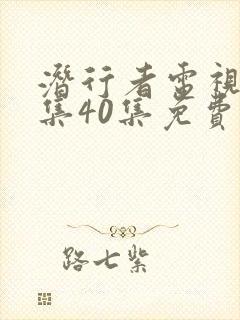 潛行者電視
集40集免費
路七紫